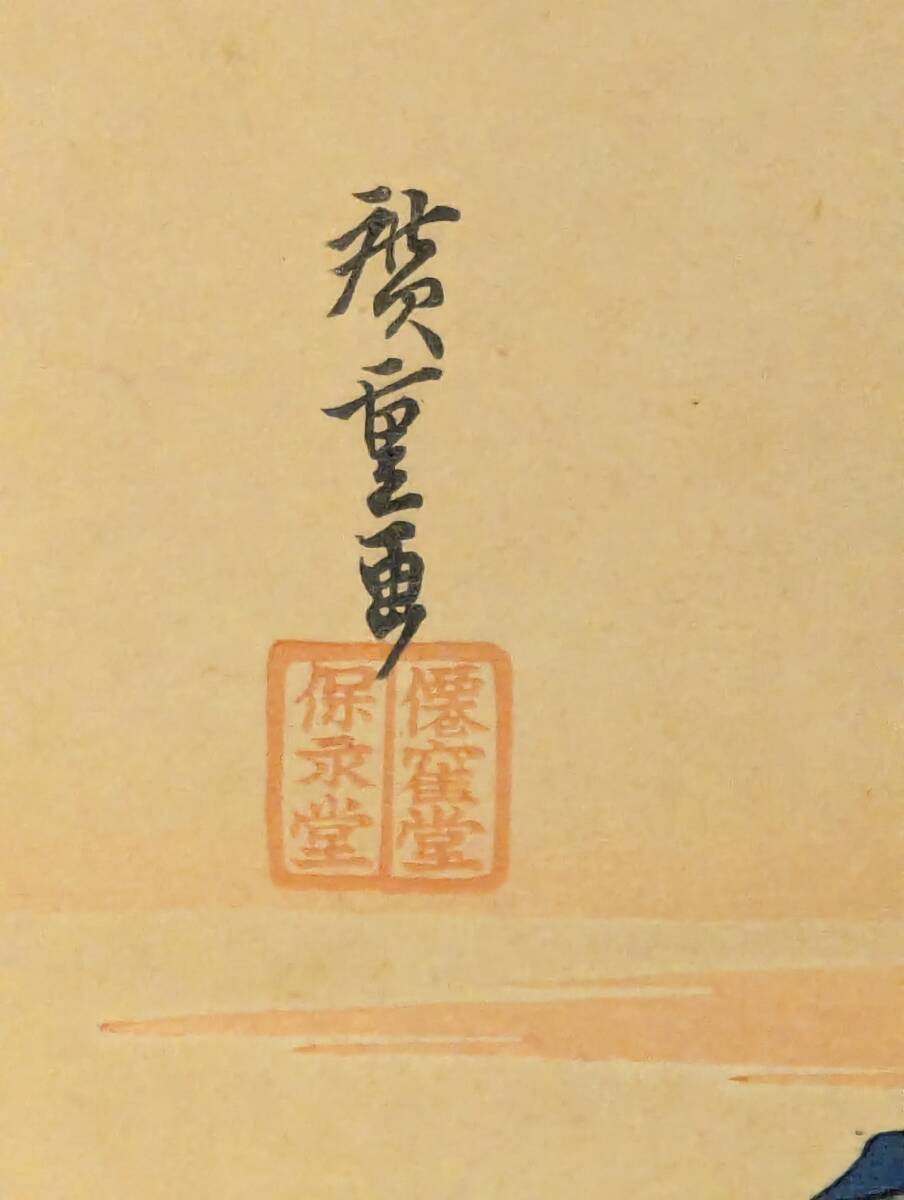 廣重画
僊窩堂
保永堂